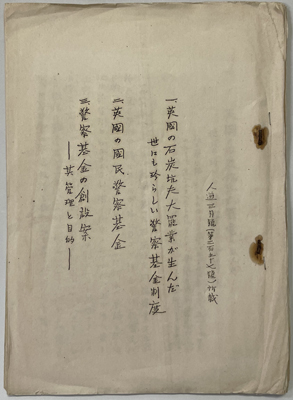 人道 月號(第二百五十七號)所載
一、英國の石炭坑夫大罷業が生んだ
世にも珍らしい警察基金制度
二、英國の國民警察基金
三、警察基金の創設案
―其管理と目的―